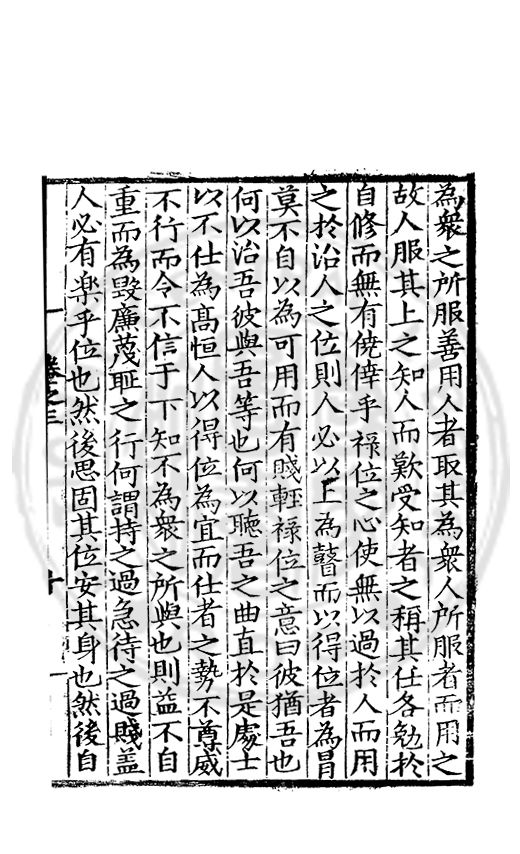 為衆之所服善用人者取其為衆人所服者而用之
故人服其上之知人而歎受知者之稱其任各勉於
自修而無有僥倖乎祿位之心使無以過於人而用
之於治人之位則人必以上為瞽而以得位者為冒
莫不自以為可用而有賤輕祿位之意曰彼猶吾也
何以治吾彼與吾等也何以聽吾之曲直於是處士
以不仕為髙恒人以得位為宜而仕者之勢不尊威
不行而令不信于下知不為衆之所與也則益不自
重而為毀廉蔑耻之行何謂持之過急待之過賤盖
人必有楽乎位也然後思固其位安其身也然後自
卷之三
十一